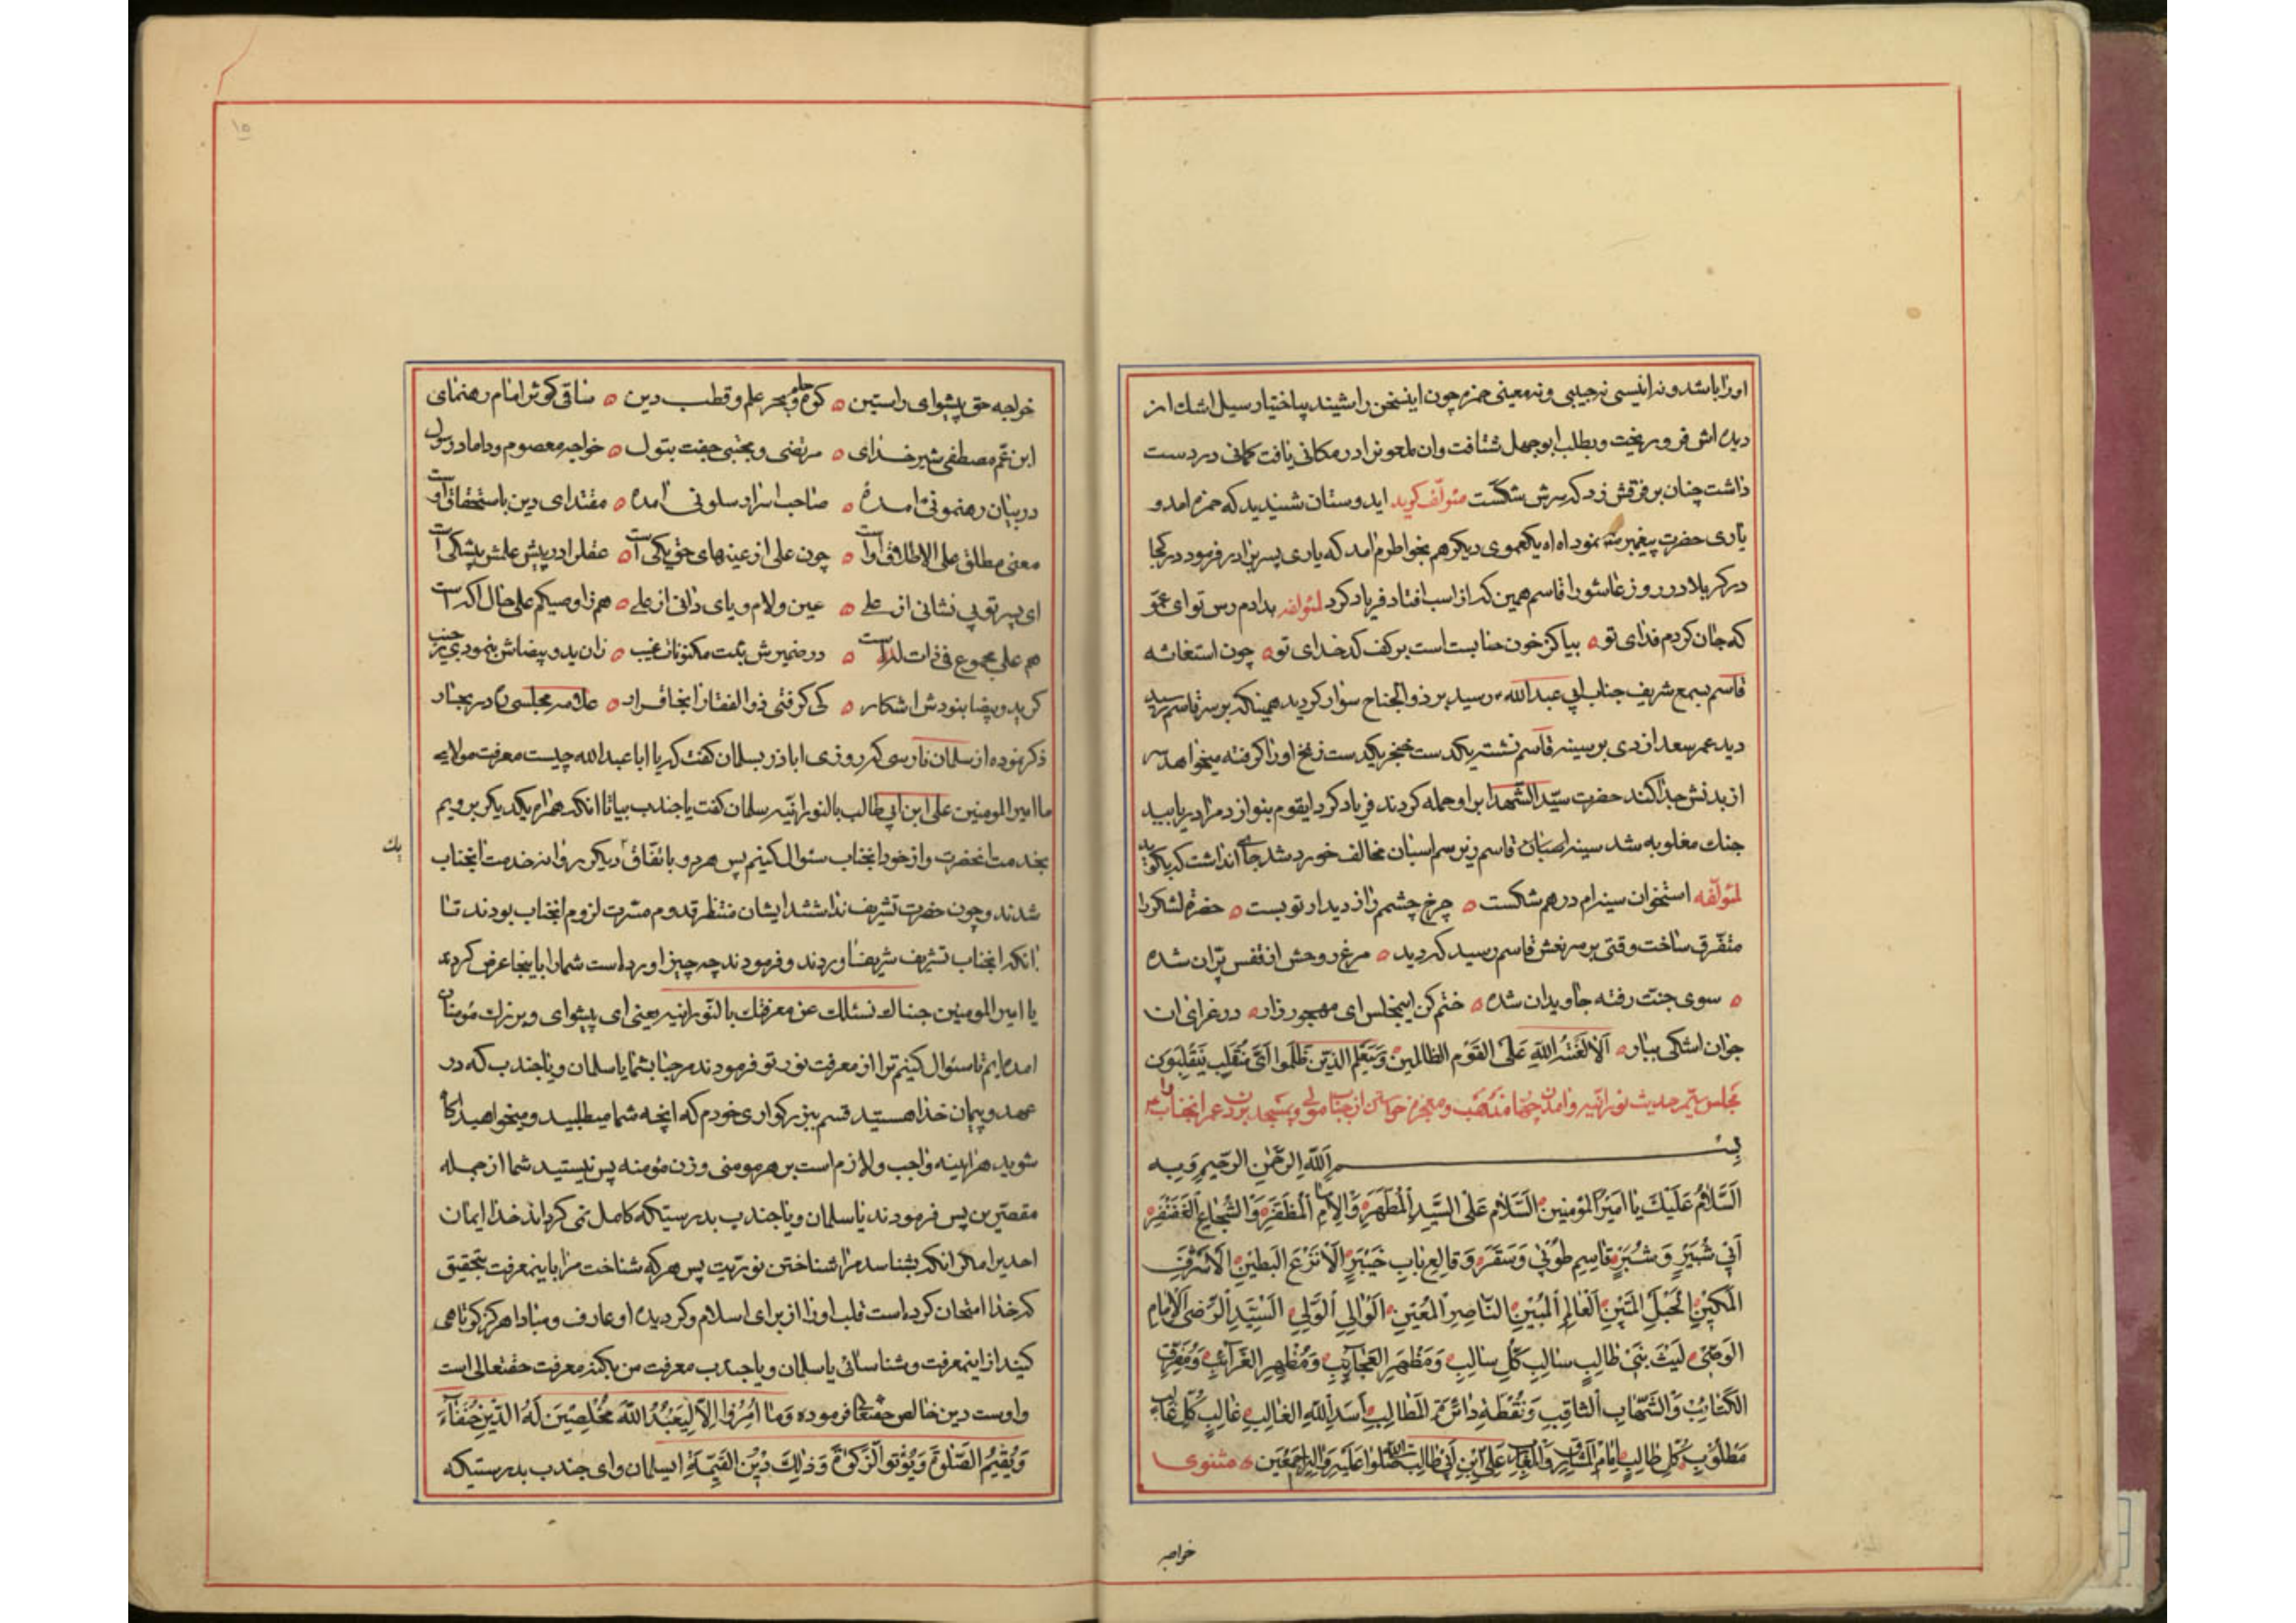 اورا باشد و نه انیسی نه حبیبی و نه معینی حمزه چون اینسخن را شنید بیاختیار سیل اشك از
دیده اش فرو ریخت و بطلب ابو جهل شتافت وان ملعونرا در مکانی یافت کمانی در دست
داشت چنان بر فرقش زد که سرش شکست مئولّف کوید ایدوستان شنیدید که حمزه امد و
یاری حضرت پیغمبر نمود اه اه یکعموی دیکر هم بخواطرم امد که یاری پسر برادر فرمود در کجا
در کربلا در روز عاشورا قاسم همین که از اسب افتاد فریاد کرد لمئولفه بدادم رس تو ای عمّو
که جان کردم فدای تو ه بیا کز خون حنا بست است بر کف کدخدای تو ه چون استغاثه
قاسم بسمع شریف جناب ابی عبد الله ع رسید بر ذو الجناح سوار کردید همینکه بر سر قاسم رسید
دید عمر سعد ازدی بر سینه قاسم نشسته یکدست خنجر یکدست زنخ اورا کرفته میخواهد سر
از بدنش جدا کند حضرت سیّد الشّهدا بر او حمله کردند فریاد کرد ایقوم بنو ازد مرا دریابید
جنك مغلوبه شد سینه قاسم زیر سم اسبان مخالف خورد شد جا انداشت که بکوید
لمئولّفه استخوان سینه ام درهم شکست ه چرخ چشمم را از دیدار تو بست ه حضرة لشکر را
متفّرق ساخت وقتی بر سر نعش قاسم رسید که دید ه مرغ روحش از قفس پرّان شده
ه سوی جنّت رفته جاویدان شده ه ختم کن اینمجلس ای مهجور زار ه در عزای ان
جوان اشکی ببار ه اَلا لَعْنَةُ اللّهِ عَلَی القَوْمِ الظالمین وَسَیَعْلَمُ الَّذینَ ظَلَموُا اَیَّ مُنْقَلَبٍ یَنْقَلِبُون
مجلس سیّم حدیث نورانیّه و امدن و معجزه خواستن از جناب مولی و بمسجد بردن عمر انجناب را
بِســـــــمِ اَللّهِ الرَّحْمنِ الرَّحیمِ وَ بِهِ
اَلسَّلامُ عَلَیْكَ یا اَمیرَ المُؤمِنینَ اَلسَّلامُ عَلَی السَّیِدِ اَلْمُطَهَّرِ وَ الاِمامِ اَلْمُظَفَّرِ وَ الشُّجاعِ اَلْغَضَنْفَرِ
اَبی شُبَیْرٍ وَ شَبَّرٍ قاسِمِ طُوبی وَ سَقَرٍ وَ قالِعِ بابِ خَیْبَرٍ اَلاَنْزَعِ اَلبَطینِ اَلاَشْرَفِ
اَلْمَکینِ اَلْحَبْلِ المَتینِ اَلْعالِمِ اَلمُبینِ النّاصِرِ المُعینِ اَلْوالِیِ اَلوَلِیِ اَلسَّیِّدِ اَلرَّضِی اَلاِمامِ
الوَصِّی لَیْثِ بَنی طالِبٍ سالِبِ کُلِّ سالِبٍ وَ مَظْهَرِ العَجآئِبِ وَ مُظْهِرِ الغَرآئِبِ وَ مُفَرِّقِ
الکَتائِبِ وَ الشَّهابِ الثّاقِبِ وَ نُقْطَةِ دائِرَةِ المَطالِبِ اَسَدِ اللّهِ الغالِبِ غالِبِ کُلِّ غالِبٍ
مَطْلُوبِ کُلِ طالِبٍ اِمامِ المَشارِقِ وَ المَغارِبِ عَلِیِ ابْنِ اَبی طالِبٍ صَلَواةُ اللّه عَلَیْهِ وَ الِهِ اَجْمَعین ه مثنوی
خواجه
خواجه حق پیشوای راستین ه کوه حلم و بحر علم و قطب دین ه ساقی کوثر امام رهنمای
ابن عمّ مصطفی شیر خدای ه مرتضی و مجتبی جفت بتول ه خواجه معصوم و داماد رسول
در بیان رهنمونی امده ه صاحب اسرار سلونی امده ه مقتدای دین باستحقاق اوست
معنی مطلق علی الاطلاق اوست ه چون علی از عینهای حق یکی است ه عقل را در پیش علمش شکی است
ای پسر تو بی نشانی از علی ه عین و لام و یای دانی از علی ه
هم علی مجموع فی ذات است ه در ضمیرش مکنونات غیب ه زان ید بیضاش بنمودی ز جیب
کر ید بیضا بنودش اشکار ه کی کرفتی ذو الفقار انجا قرار ه علامه مجلسی در بحار
ذکر نموده از سلمان فارسی که روزی اباذر بسلمان کفت که یا ابا عبد الله چیست معرفت مولای
ما امیر المومنین علی ابن ابی طالب بالنورانیّه سلمان کفت یا جندب بیا تا انکه همراه یکدیکر برویم
بخدمت انحضرت و از خود انجناب سئوال کنیم پس هر دو باتّفاق دیکر روانه خدمت انجناب
یك
شدند و چون حضرت تشریف نداشتند ایشان منتظر قدوم مسّرت لزوم انجناب بودند تا
انکه انجناب تشریف شریف اوردند و فرمودند چه چیز اورده است شمارا باینجا عرض کردند
یا امیر المومنین جئناك نسئلك عن معرفتك بالنّورانیه یعنی ای پیشوای و بزرك مؤمنان
امده ایم تا سئوال کنیم ترا از معرفت نور تو فرمودند مرحبا بشما یا سلمان و یا جندب که در
عهد و پیمان خدا هستید قسم ببزرکواری خودم که انچه شما میطلبید و میخواهید اکاه
شوید هراینه واجب و لازم است بر هر مومنی و زن مؤمنه پس نیستید شما از جمله
مقصّرین پس فرمودند یا سلمان و یا جندب بدرستیکه کامل نمی کرداند خدا ایمان
احدیرا مکر انکه بشناسد مرا شناختن نورّیت پس هر که شناخت مرا باینمعرفت بتحقیق
که خدا امتحان کرده است قلب اورا از برای اسلام و کردیده او عارف و مبادا هرکز کوتاهی
کنید از اینمعرفت و شناسائی یا سلمان و یا جندب معرفت من یکند معرفت حقتعالی است
و اوست دین خالص حقتعالی فرموده وَ ما اُمِرُوا اِلاّ لِیَعْبُدُ اللّهَ مُخْلِصینَ لَهُ الدّینَ حُنَفآءَ
وَ یُقیمُ الصَّلوةَ وَ یُؤْتو الزَّکوةَ وَ ذالِكَ دینُ القَیِّمَةِ ایسلمان و ای جندب بدرستیکه